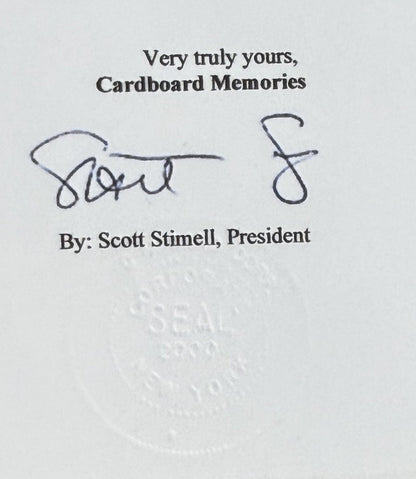 Very truly yours,
Cardboard Memories
Scott S
By: Scott Stimell, President
SEAL
2000
NEW YORK